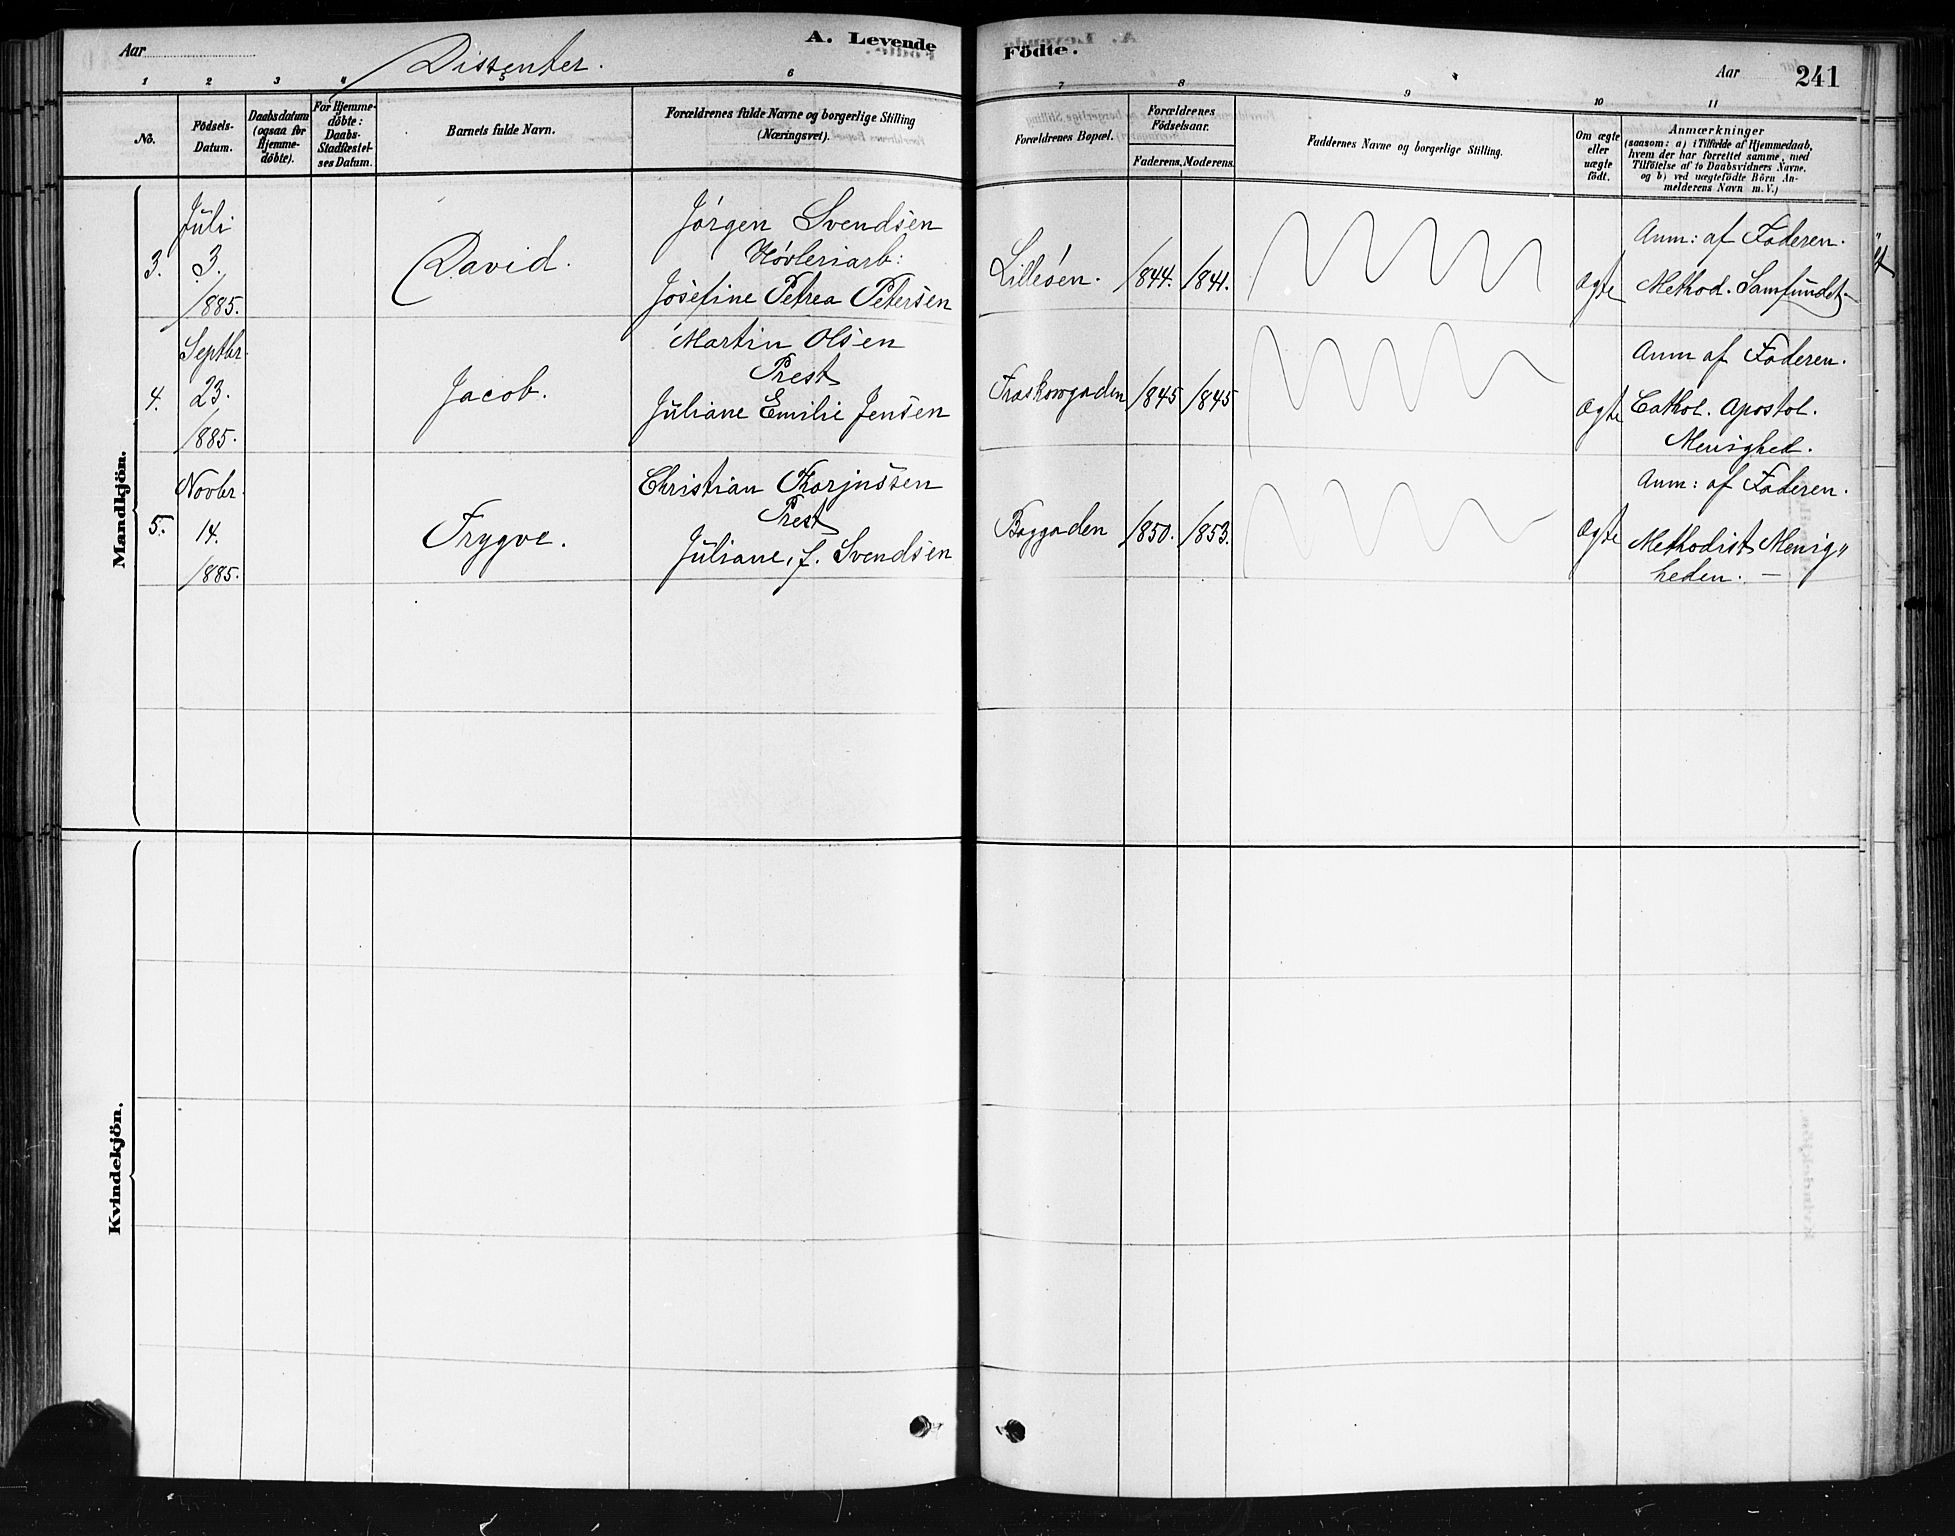 Aar
Dissenter.
A. Levende
1 2 3 4 6
No.
Födsels-
Datum.
Daabsdatum
(ogsaa for
Hjemme-
döbte).
For Hjemme-
döbte:
Daabs-
Stadfæstel-
ses Datum.
Barnets fulde Navn.
Forældrenes fulde Navne og borgerlige Stilling
(Næringsvei).
Mandkjön.
Juli
3.
3.
1885.
David.
Jörgen Svendsen
Hövleriarb:
Josefine Petrea Petersen
Septbr.
4.
23.
1885.
Jacob.
Martin Olsen
Prest
Juliane Emilie Jensen
Novbr.
5.
14.
1885.
Trygve.
Christian Thorjussen
Prest
Juliane, f. Svendsen
Kvindekjön.
Födte.
Aar
241
7 8 9 10 11
Forældrenes Bopæl.
Forældrenes
Födselsaar.
Faderens. Moderens.
Faddernes Navne og borgerlige Stilling.
Om ægte
eller
uægte
födt.
Anmærkninger
(saasom: a) i Tilfælde af Hjemmedaab,
hvem der har forrettet samme, med
Tilföielse af to Daabsvidners Navne,
og b) ved uægtefödte Börn An-
melderens Navn m. V.)
Lilleöen.
1844. 1841.
Ægte
Anm: af Faderen.
Method. Samfundet
1845 1845
Ægte
Anm af Faderen.
Cathol. Apostol.
Menighed.
Baggaden
1850. 1853.
Ægte
Anm: af Faderen.
Methodist Menig„
heden. –